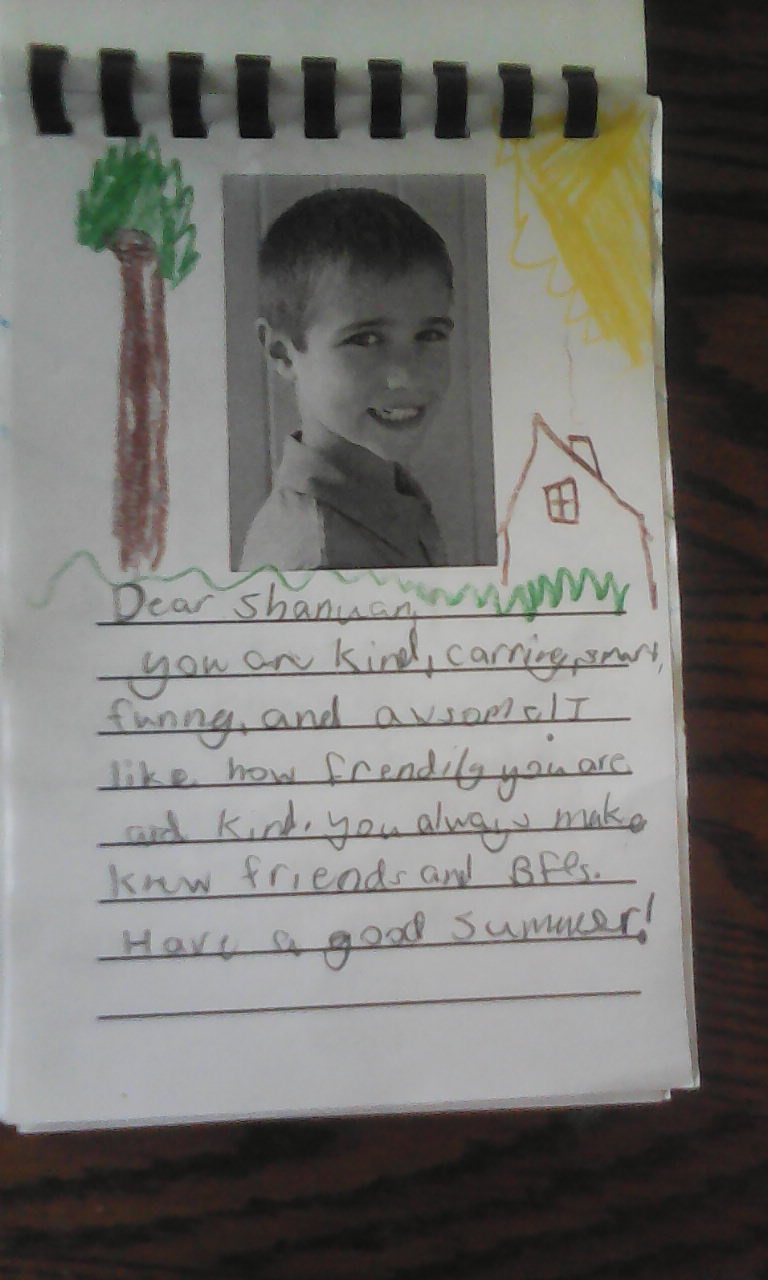 Dear Shanuan,
you are kind, carring, smart,
funny, and avsome! I
like how frendily you are
and kind. you always make
knew friends and Bffs.
Have a good summer!